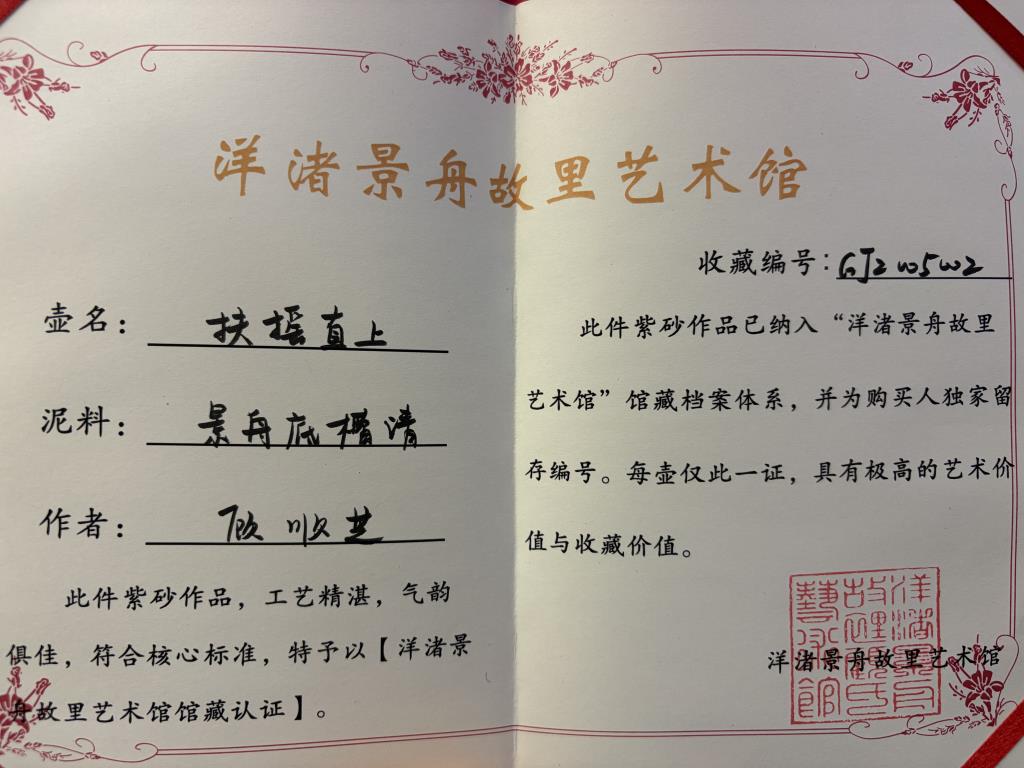 洋渚景舟故里艺术馆
壶名：扶摇直上
泥料：景舟底槽清
作者：顾顺芝
此件紫砂作品，工艺精湛，气韵
俱佳，符合核心标准，特予以【洋渚景
舟故里艺术馆馆藏认证】。
收藏编号：
此件紫砂作品已纳入“洋渚景舟故里
艺术馆”馆藏档案体系，并为购买人独家留
存编号。每壶仅此一证，具有极高的艺术价
值与收藏价值。
洋渚景舟故里艺术馆